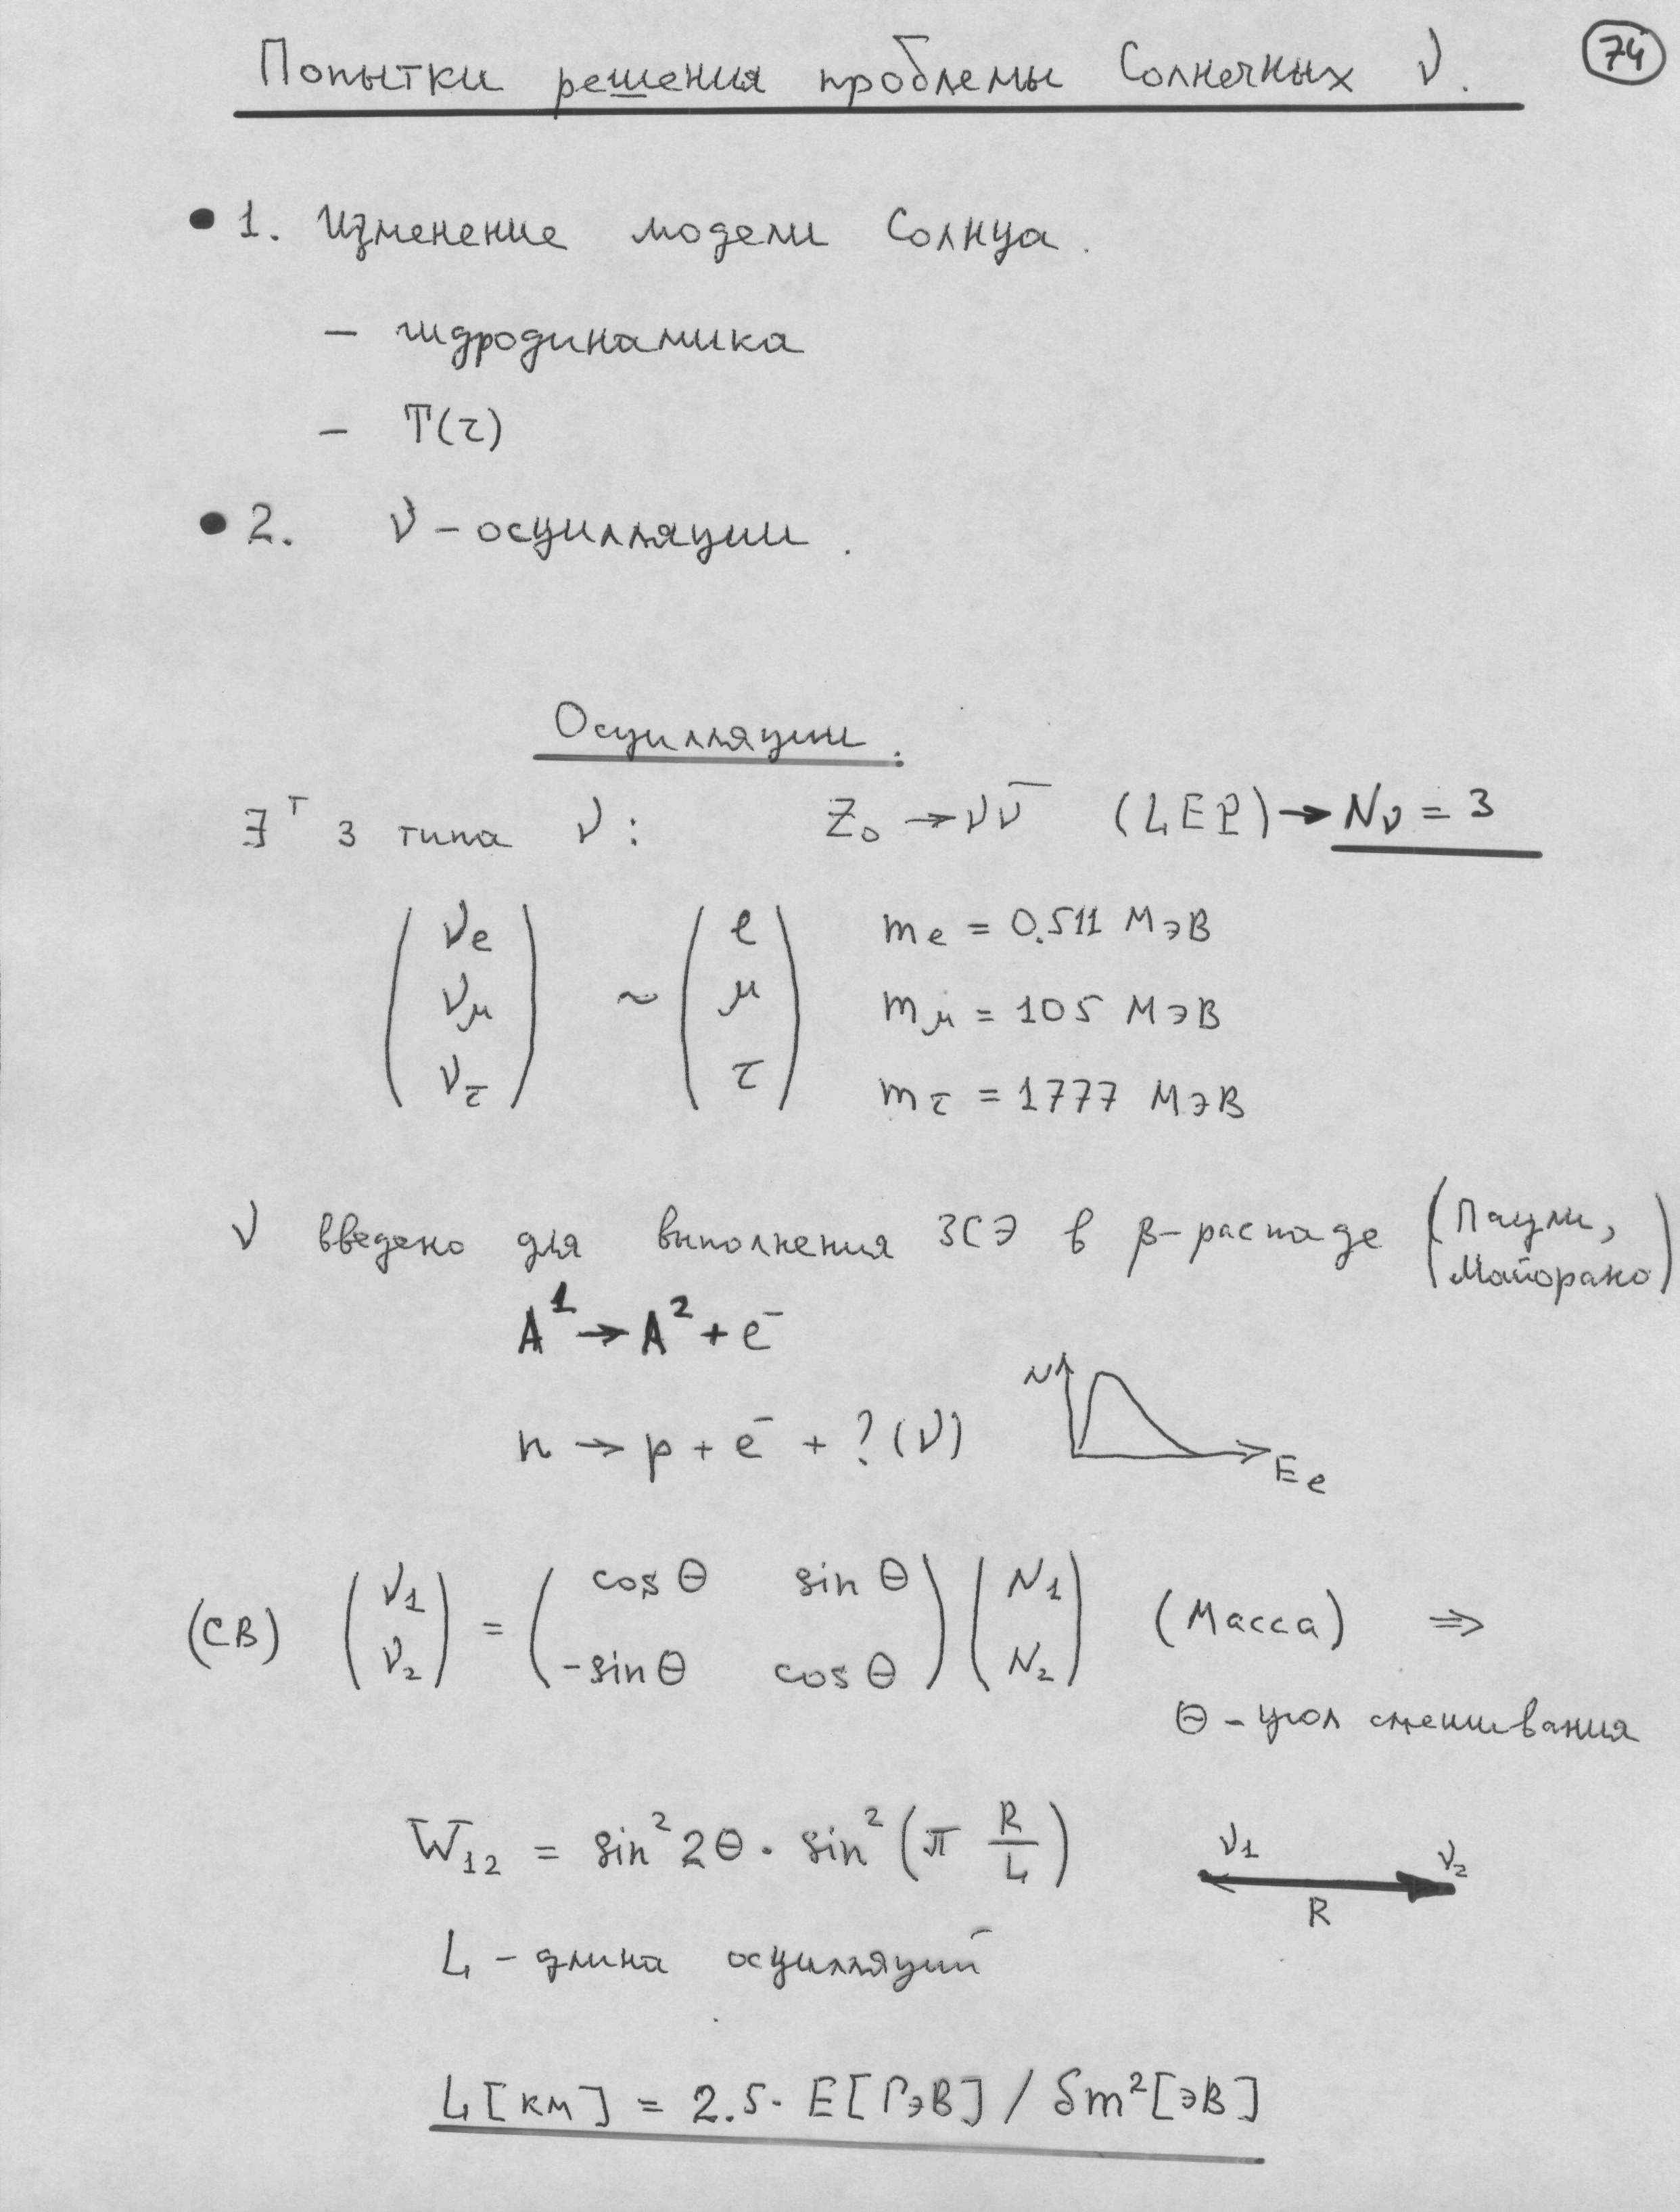 Попытки решения проблемы Солнечных ν.
74
• 1. Изменение модели Солнца.
– гидродинамика
– T(r)
• 2. ν – осцилляции.
Осцилляции.
∃ᵀ 3 типа ν: Z₀ → νν̅ (LEP) → Nν = 3
(νe νμ ντ) ~ (e μ τ)
me = 0.511 МэВ
mμ = 105 МэВ
mτ = 1777 МэВ
ν введено для выполнения ЗСЭ в β–распаде (Паули, Майорано)
A¹ → A² + e⁻
n → p + e⁻ + ? (ν)
N
Ee
(СВ) (ν₁ ν₂) = (cos θ sin θ -sin θ cos θ) (N₁ N₂) (Масса) ⇒
θ – угол смешивания
W₁₂ = sin² 2θ · sin² (π R/L)
ν₁ ν₂
R
L – длина осцилляций
L [км] = 2.5 · E [ГэВ] / δm² [эВ]